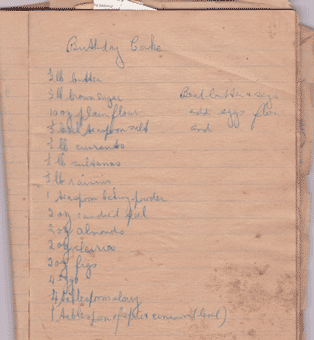 Birthday Cake
½ lb butter
½ lb brown sugar
10 oz plain flour
teaspoon salt
½ lb currants
½ lb sultanas
½ lb raisins
1 teaspoon baking powder
2 oz candied peel
2 oz almonds
2 oz
2 oz figs
4 eggs
4 tablespoons
1 tablespoon of spice & cinnamon (level)
Beat butter & sugar
add eggs flour
and